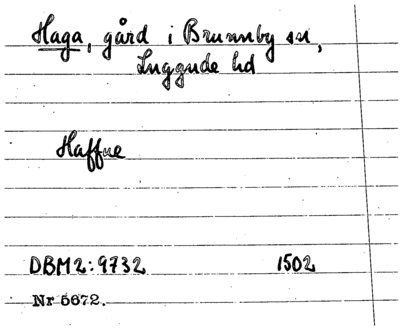 Haga, gård i Brunnby sn,
Luggude hd
Haffne
DBM2:9732 1502
Nr 5672.